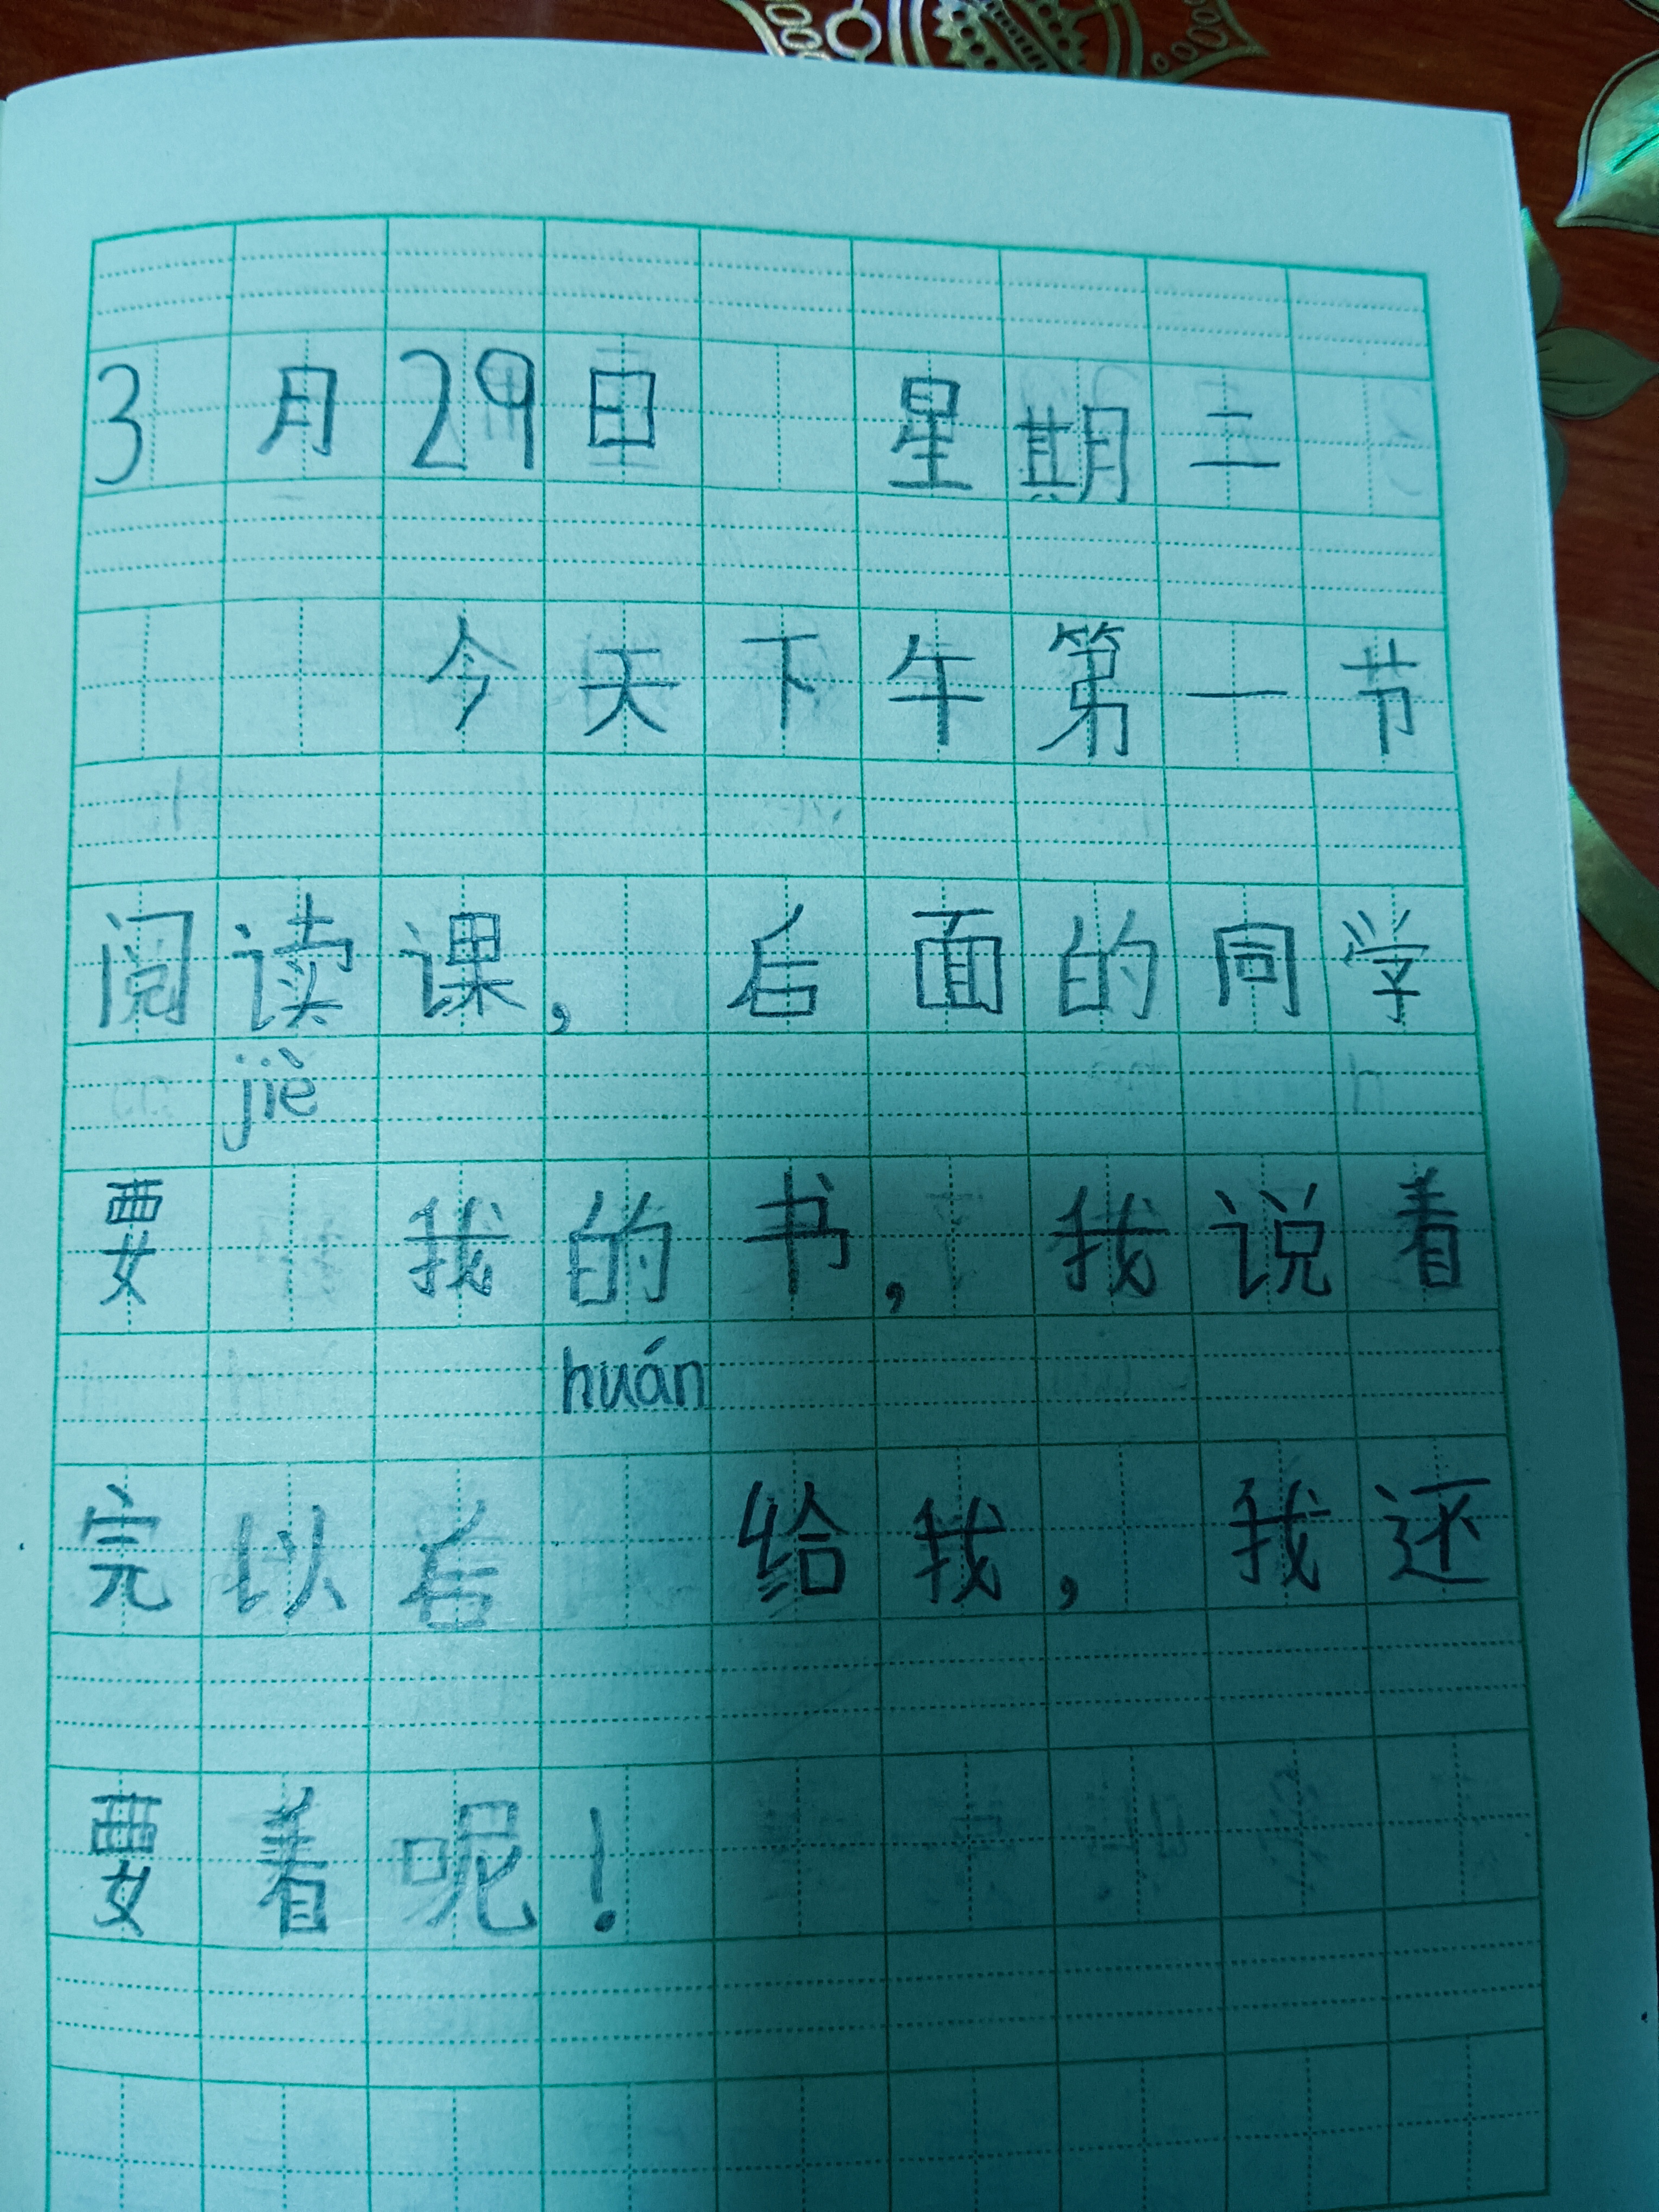 3月29日 星期二
今天下午第一节
阅读课,后面的同学
要jiè我的书,我说着
完以后huán给我,我还
要着呢!